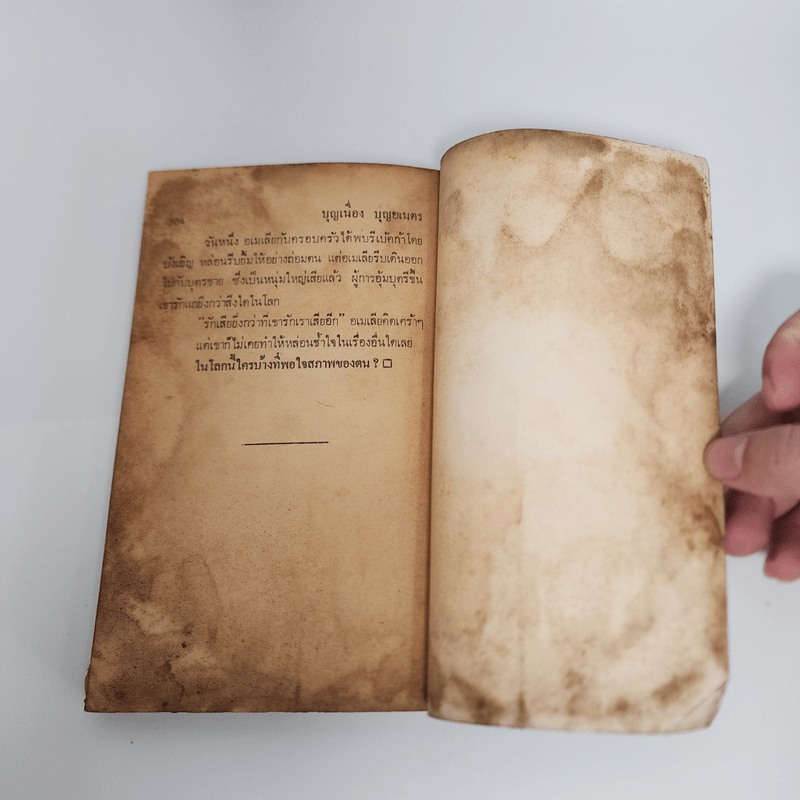 บุญเนื่อง บุญยเนตร
วันหนึ่ง อเมเลียกับครอบครัวได้พบรีเบ้คก้าโดย
บังเอิญ หล่อนรีบยิ้มให้อย่างถ่อมตน แต่อเมเลียรีบเดินออก
ไปกับบุตรชาย ซึ่งเป็นหนุ่มใหญ่เสียแล้ว ผู้การอุ้มบุตรีขึ้น
เขารักแกยิ่งกว่าสิ่งใดในโลก
“รักเสียยิ่งกว่าที่เขารักเราเสียอีก” อเมเลียคิดเศร้าๆ
แต่เขาก็ไม่เคยทำให้หล่อนช้ำใจในเรื่องอื่นใดเลย
ในโลกนี้ใครบ้างที่พอใจสภาพของตน ? □